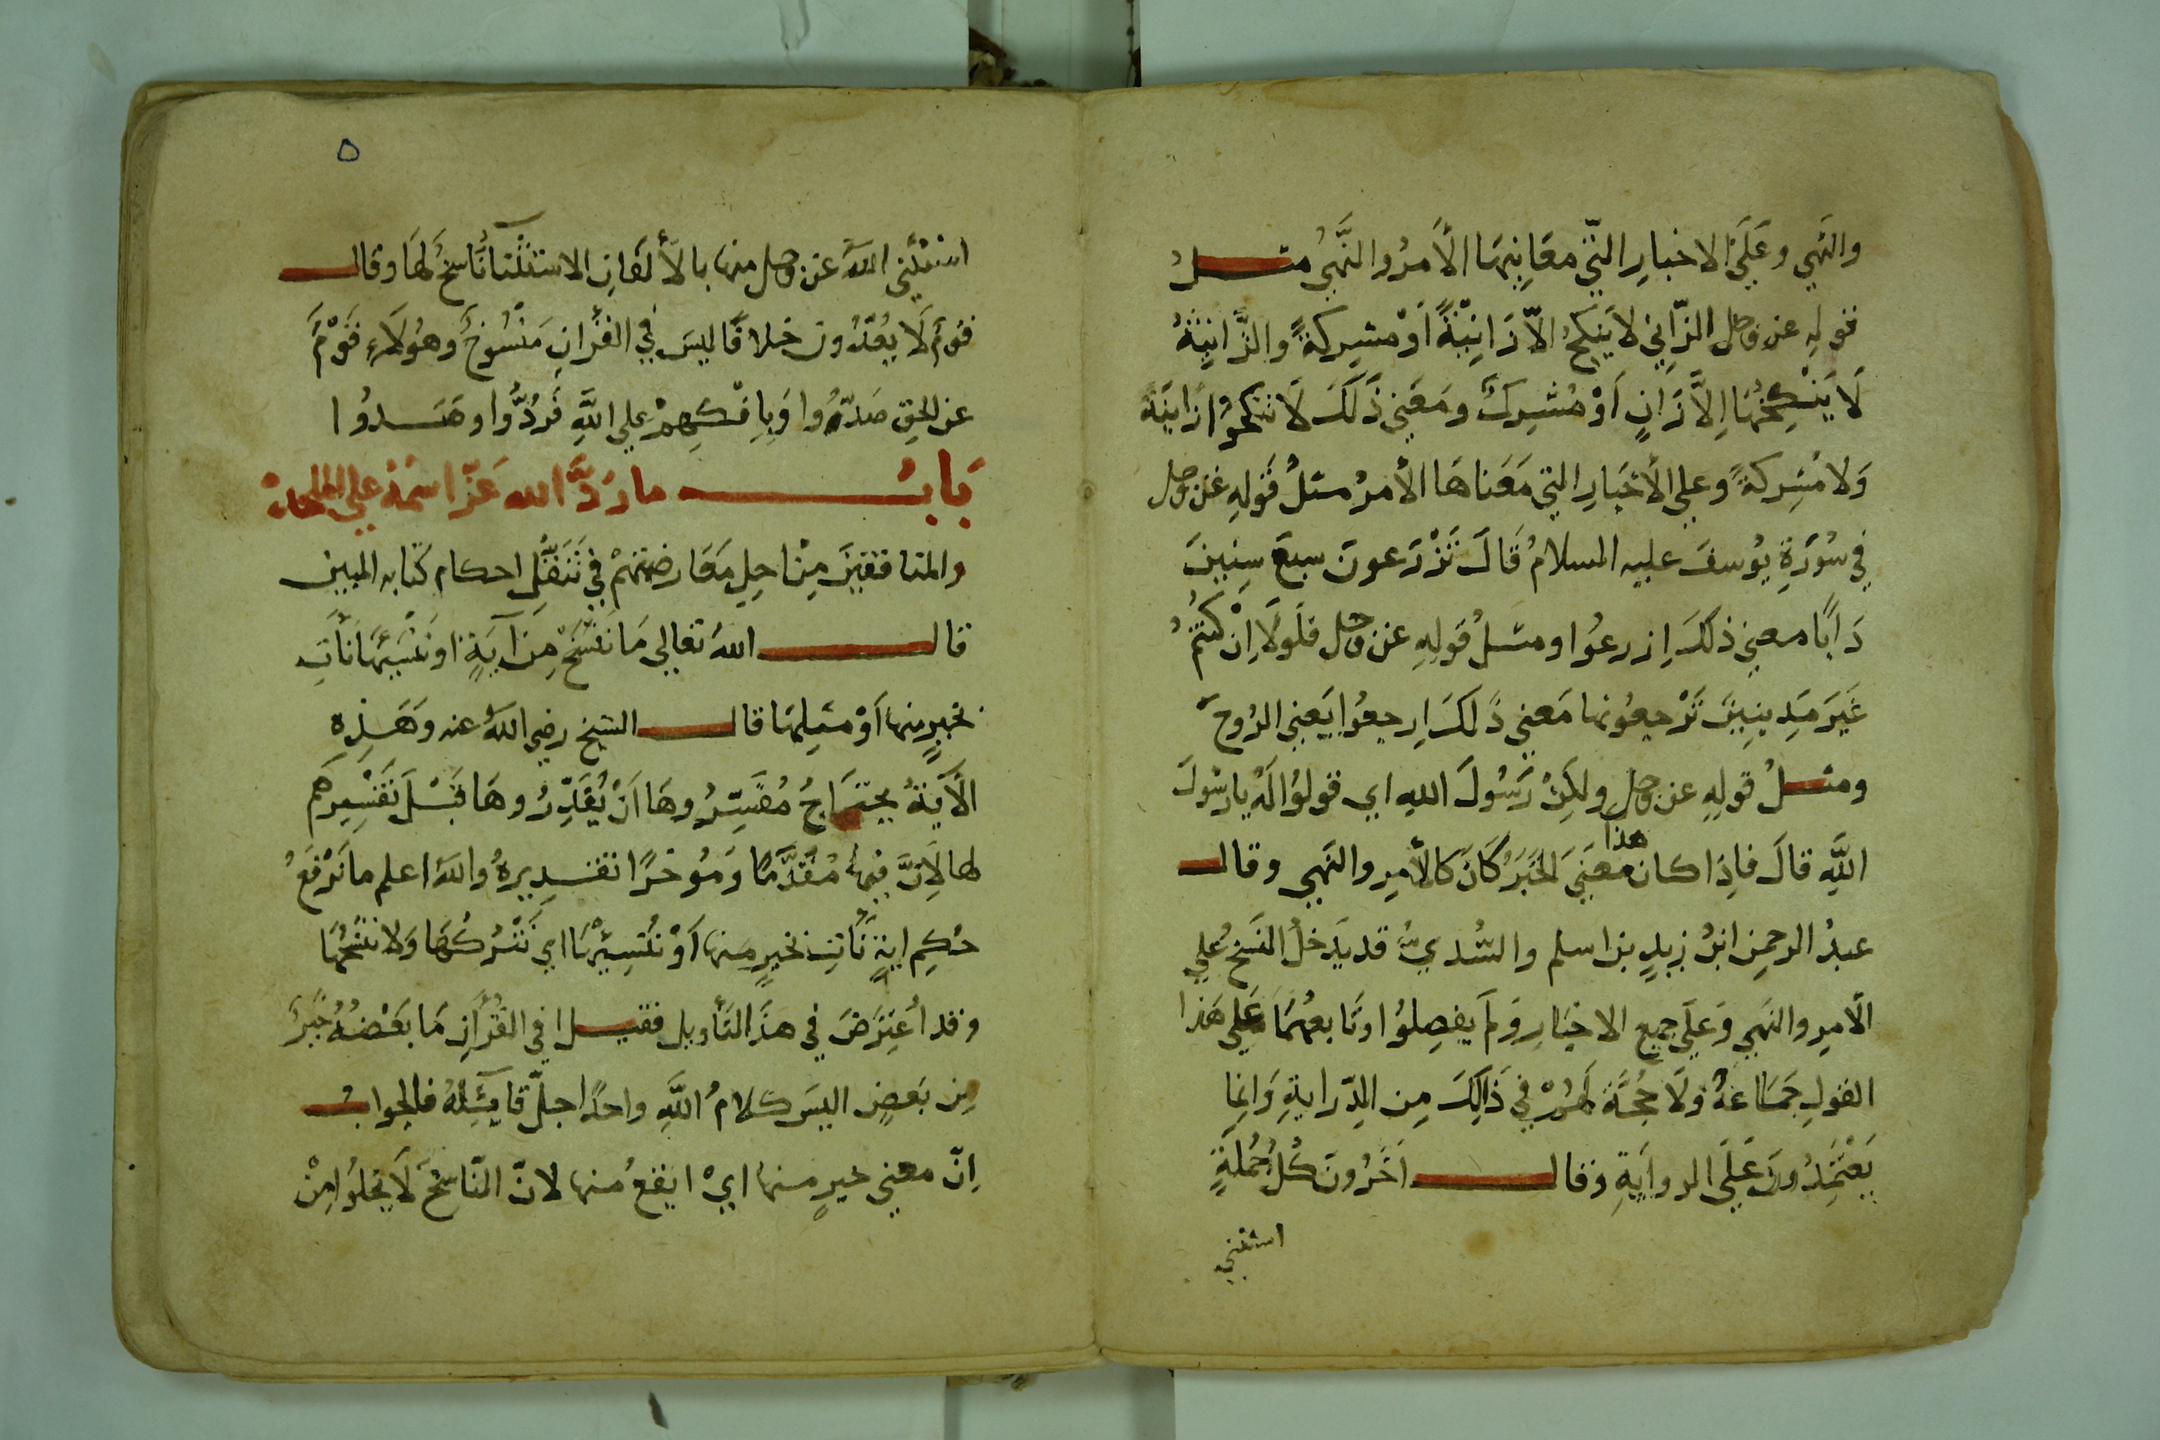 والنهي وعلى الاخبار التي معانيها الأمر والنهي مثل
قوله عز وجل الزاني لا ينكح الا زانية او مشركة والزانية
لا ينكحها الا زان او مشرك ومعني ذلك لا تنكحوا زانية
ولا مشركة وعلي الأخبار التي معناها الأمر مثل قوله عز وجل
في سورة يوسف عليه السلام قال تزرعون سبع سنين
دابا معني ذلك ازرعوا ومثل قوله عز وجل فلولا ان كنتم
غير مدينين ترجعونها معني ذلك ارجعوا يعني الروح
ومثل قوله عز وجل ولكن رسول الله اي قولوا له يا رسول
الله قال فاذا كان هذا معني الخبر كان كالأمر والنهي وقال
عبد الرحمن ابن زيد بن اسلم والسدي قد يدخل النسخ علي
الأمر والنهي وعلى جميع الاخبار ولم يفصلوا وتابعهما علي هذا
القول جماعة ولا حجة لهم في ذالك من الدراية وانما
يعتمدون على الرواية وقال اخرون كل جملة
استثني
٥
استثني الله عز وجل منها بالا فان الاستثنا ناسخ لها وقال
قوم لا يعدون خلافا ليس في القران منسوخ وهولاء قوم
عن الحق صدوا وبافكهم علي الله فردوا وهدوا
باب ما رد الله عز اسمه علي الملحدة
والمنافقين من اجل معارضتهم في تنقل احكام كتابه المبين
قال الله تعالي ما ننسخ من آية او ننسيها نات
بخير منها او مثلها قال الشيخ رضي الله عنه وهذه
الآية يحتاج مفسروها ان يقدروها قبل تفسيرهم
لها لان فيها مقدما وموخرا تقديره والله اعلم ما نرفع
حكم اية نات بخير منها او ننسيها اي نتركها ولا ننسخها
وقد اعترض في هذا التأويل فقيل افي القرآن ما بعضه خير
من بعض اليس كلام الله واحدا جل قايله فالجواب
ان معني خير منها اي انفع منها لان الناسخ لا يخلوا من